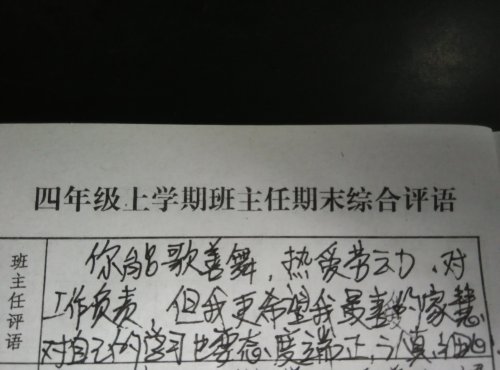 四年级上学期班主任期末综合评语
班主任评语
你能歌善舞，热爱劳动、对
工作负责。但我更希望我最喜爱的家慧
对自己的学习也要态度端正，认真细心